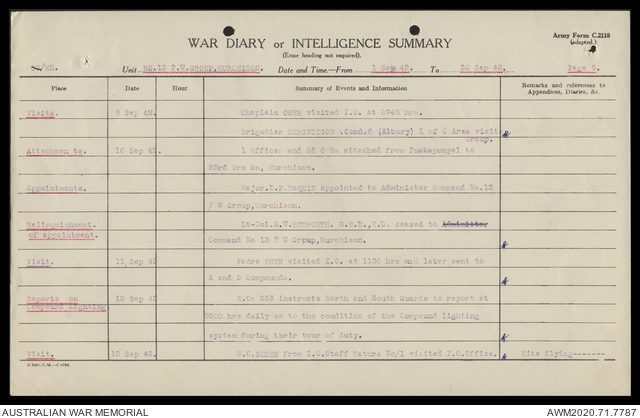 Army Form C.2118
(adapted.)
WAR DIARY or INTELLIGENCE SUMMARY
(Erase heading not required).
Unit NO.13 P.W.GROUP,MURCHISON. Date and Time.—From 1 Sep 42. To 30 Sep 42. Page 5.
Place Date Hour Summary of Events and Information Remarks and references to Appendices, Diaries, &c.
Visits. 9 Sep 42. Chaplain visited I.O. at 0945 hrs.
Brigadier (Albury) L of C Area visits
Group.
Attachments. 10 Sep 42. 1 Officer and 36 O Rs attached from Puckapunyal to
23rd Grn Bn, Murchison.
Appointments. Major.L.F. appointed to Administer Command No.13
P W Group,Murchison.
Relinquishment Lt-Col.G.W. O.B.E.,E.D. ceased to Administer
of appointment. Command No 13 P W Group,Murchison.
Visit. 11 Sep 42 Padre visited I.O. at 1130 hrs and later went to
A and B Compounds.
Reports on 12 Sep 42 R.O. 253 instructs North and South Guards to report at
Compound Lighting. 0800 hrs daily as to the condition of the Compound lighting
system during their tour of duty.
Visit. 13 Sep 42. from I.O.Staff Tatura No/1 visited I.O.Office. Kite flying-------
AUSTRALIAN WAR MEMORIAL AWM2020.71.7787